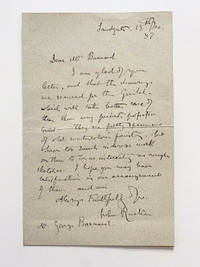 Sandgate 15th Dec.
87
Dear Mr Barnard
I am glad of your
letter, and that the drawings
are secured for the Guild -
which will take better care of
them than any private possessor
could - They are pretty specimens
of old watercolour painting, but
have too much in them
on them to be as interesting as rough
sketches. I hope you may have
satisfaction in our arrangements
of them and am
Always Faithfully Yrs.
John Ruskin
Mr George Barnard